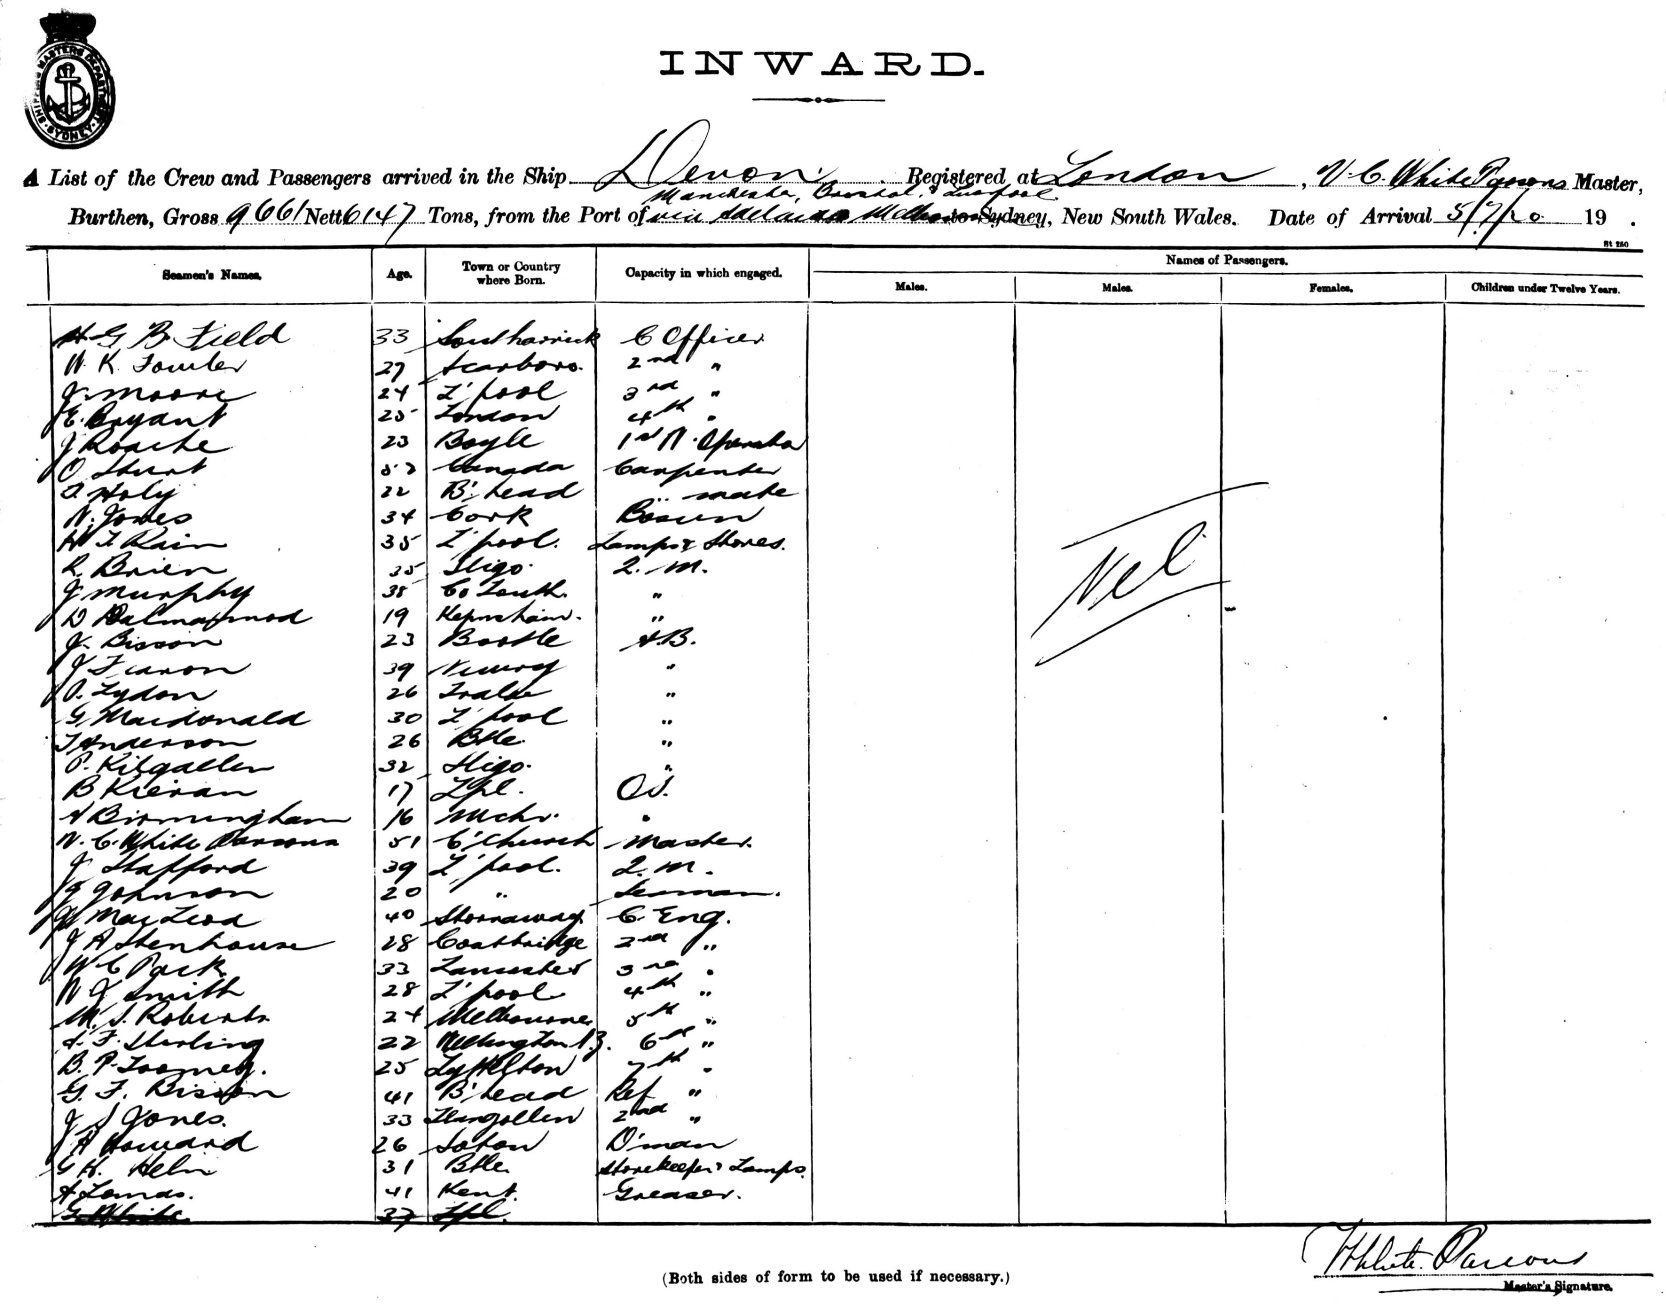 SHIPPING MASTERS DEPARTMENT SYDNEY
INWARD.
A List of the Crew and Passengers arrived in the Ship Devon Registered at London, W. C. White Parsons Master,
Manchester, & Liverpool
Burthen, Gross 9661 Nett 6147 Tons, from the Port of via Adelaide to Sydney, New South Wales. Date of Arrival 5/7/20 19 .
St 250
Seamen's Names. Age. Town or Country where Born. Capacity in which engaged. Names of Passengers.
Males. Males. Females. Children under Twelve Years.
H G B Field 33 C Officer
W. K. Fowler 27 Scarboro. 2nd "
J. Moore 24 L'pool 3rd "
E. Bryant 25 London 4th "
J Roache 23 Boyle 1st W. Operator
O Sturt Canada Carpenter
A Holy 22 B'head " mate
W. Jones 34 Cork Bosun
H T Rain 35 L'pool. Lamps & Stores.
R. Brien 35 Sligo. Q. M.
J Murphy 38 Co Louth. "
D 19 "
J. Bisson 23 Bootle A.B.
J Fearon 39 Newry "
P. Lydon 26 Tralee "
G. Macdonald 30 L'pool "
T Anderson 26 Btle. "
P. Kilgallen 32 Sligo. "
B Kieran 17 Lpl. O.S.
A Birmingham 16 Mchr. "
W. C. White Parsons 51 C'Church Master.
J Stafford 39 L'pool. Q. M.
G Johnson 20 " Seaman.
MacLeod 40 Stornaway. C. Eng.
J A Stenhouse 28 Coatbridge 2nd "
W C Park 33 Lancaster 3rd "
W J Smith 28 L'pool 4th "
M. S. Roberts 24 Melbourne 5th "
A. F. Sterling 22 Wellington N.Z. 6th "
B. P. Toomey. 25 Lyttelton 7th "
G. F. Bisson 41 B'head Ref "
J S Jones. 33 Llangollen 2nd "
A Howard 26 Soton D'man
G H. Helm 31 Btle. Storekeeper & Lamps.
A Lomas. 41 Kent. Greaser.
G White 37 Lpl.
Nil
White Parsons
(Both sides of form to be used if necessary.)
Master's Signature.